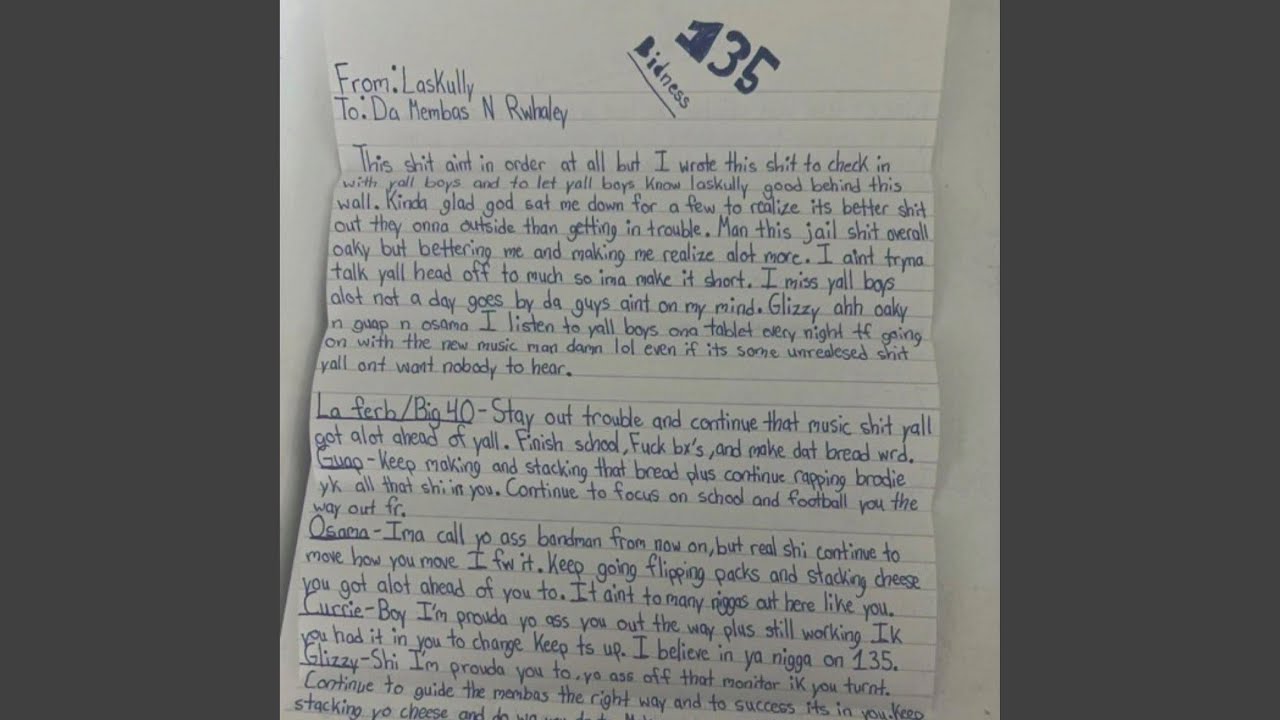 135
Bidness
From: Laskully
To: Da Membas N Rwhaley
This shit aint in order at all but I wrote this shit to check in
with yall boys and to let yall boys know laskully good behind this
wall. Kinda glad god sat me down for a few to realize its better shit
out they onna outside than getting in trouble. Man this jail shit overall
oaky but bettering me and making me realize alot more. I aint tryna
talk yall head off to much so ima make it short. I miss yall boys
alot not a day goes by da guys aint on my mind. Glizzy ahh oaky
n guap n osama I listen to yall boys ona tablet every night tf going
on with the new music man damn lol even if its some unrealesed shit
yall ont want nobody to hear.
La ferb/Big 40 - Stay out trouble and continue that music shit yall
got alot ahead of yall. Finish school, Fuck bx's, and make dat bread wrd.
Guap - Keep making and stacking that bread plus continue rapping brodie
yk all that shi in you. Continue to focus on school and football you the
way out fr.
Osama - Ima call yo ass bandman from now on, but real shi continue to
move how you move I fw it. Keep going flipping packs and stacking cheese
you got alot ahead of you to. It aint to many niggas out here like you.
Currie - Boy I'm prouda yo ass you out the way plus still working IK
you had it in you to change Keep ts up. I believe in ya nigga on 135.
Glizzy - Shi I'm prouda you to, yo ass off that monitor ik you turnt.
Continue to guide the membas the right way and to success its in you. Keep
stacking yo cheese and